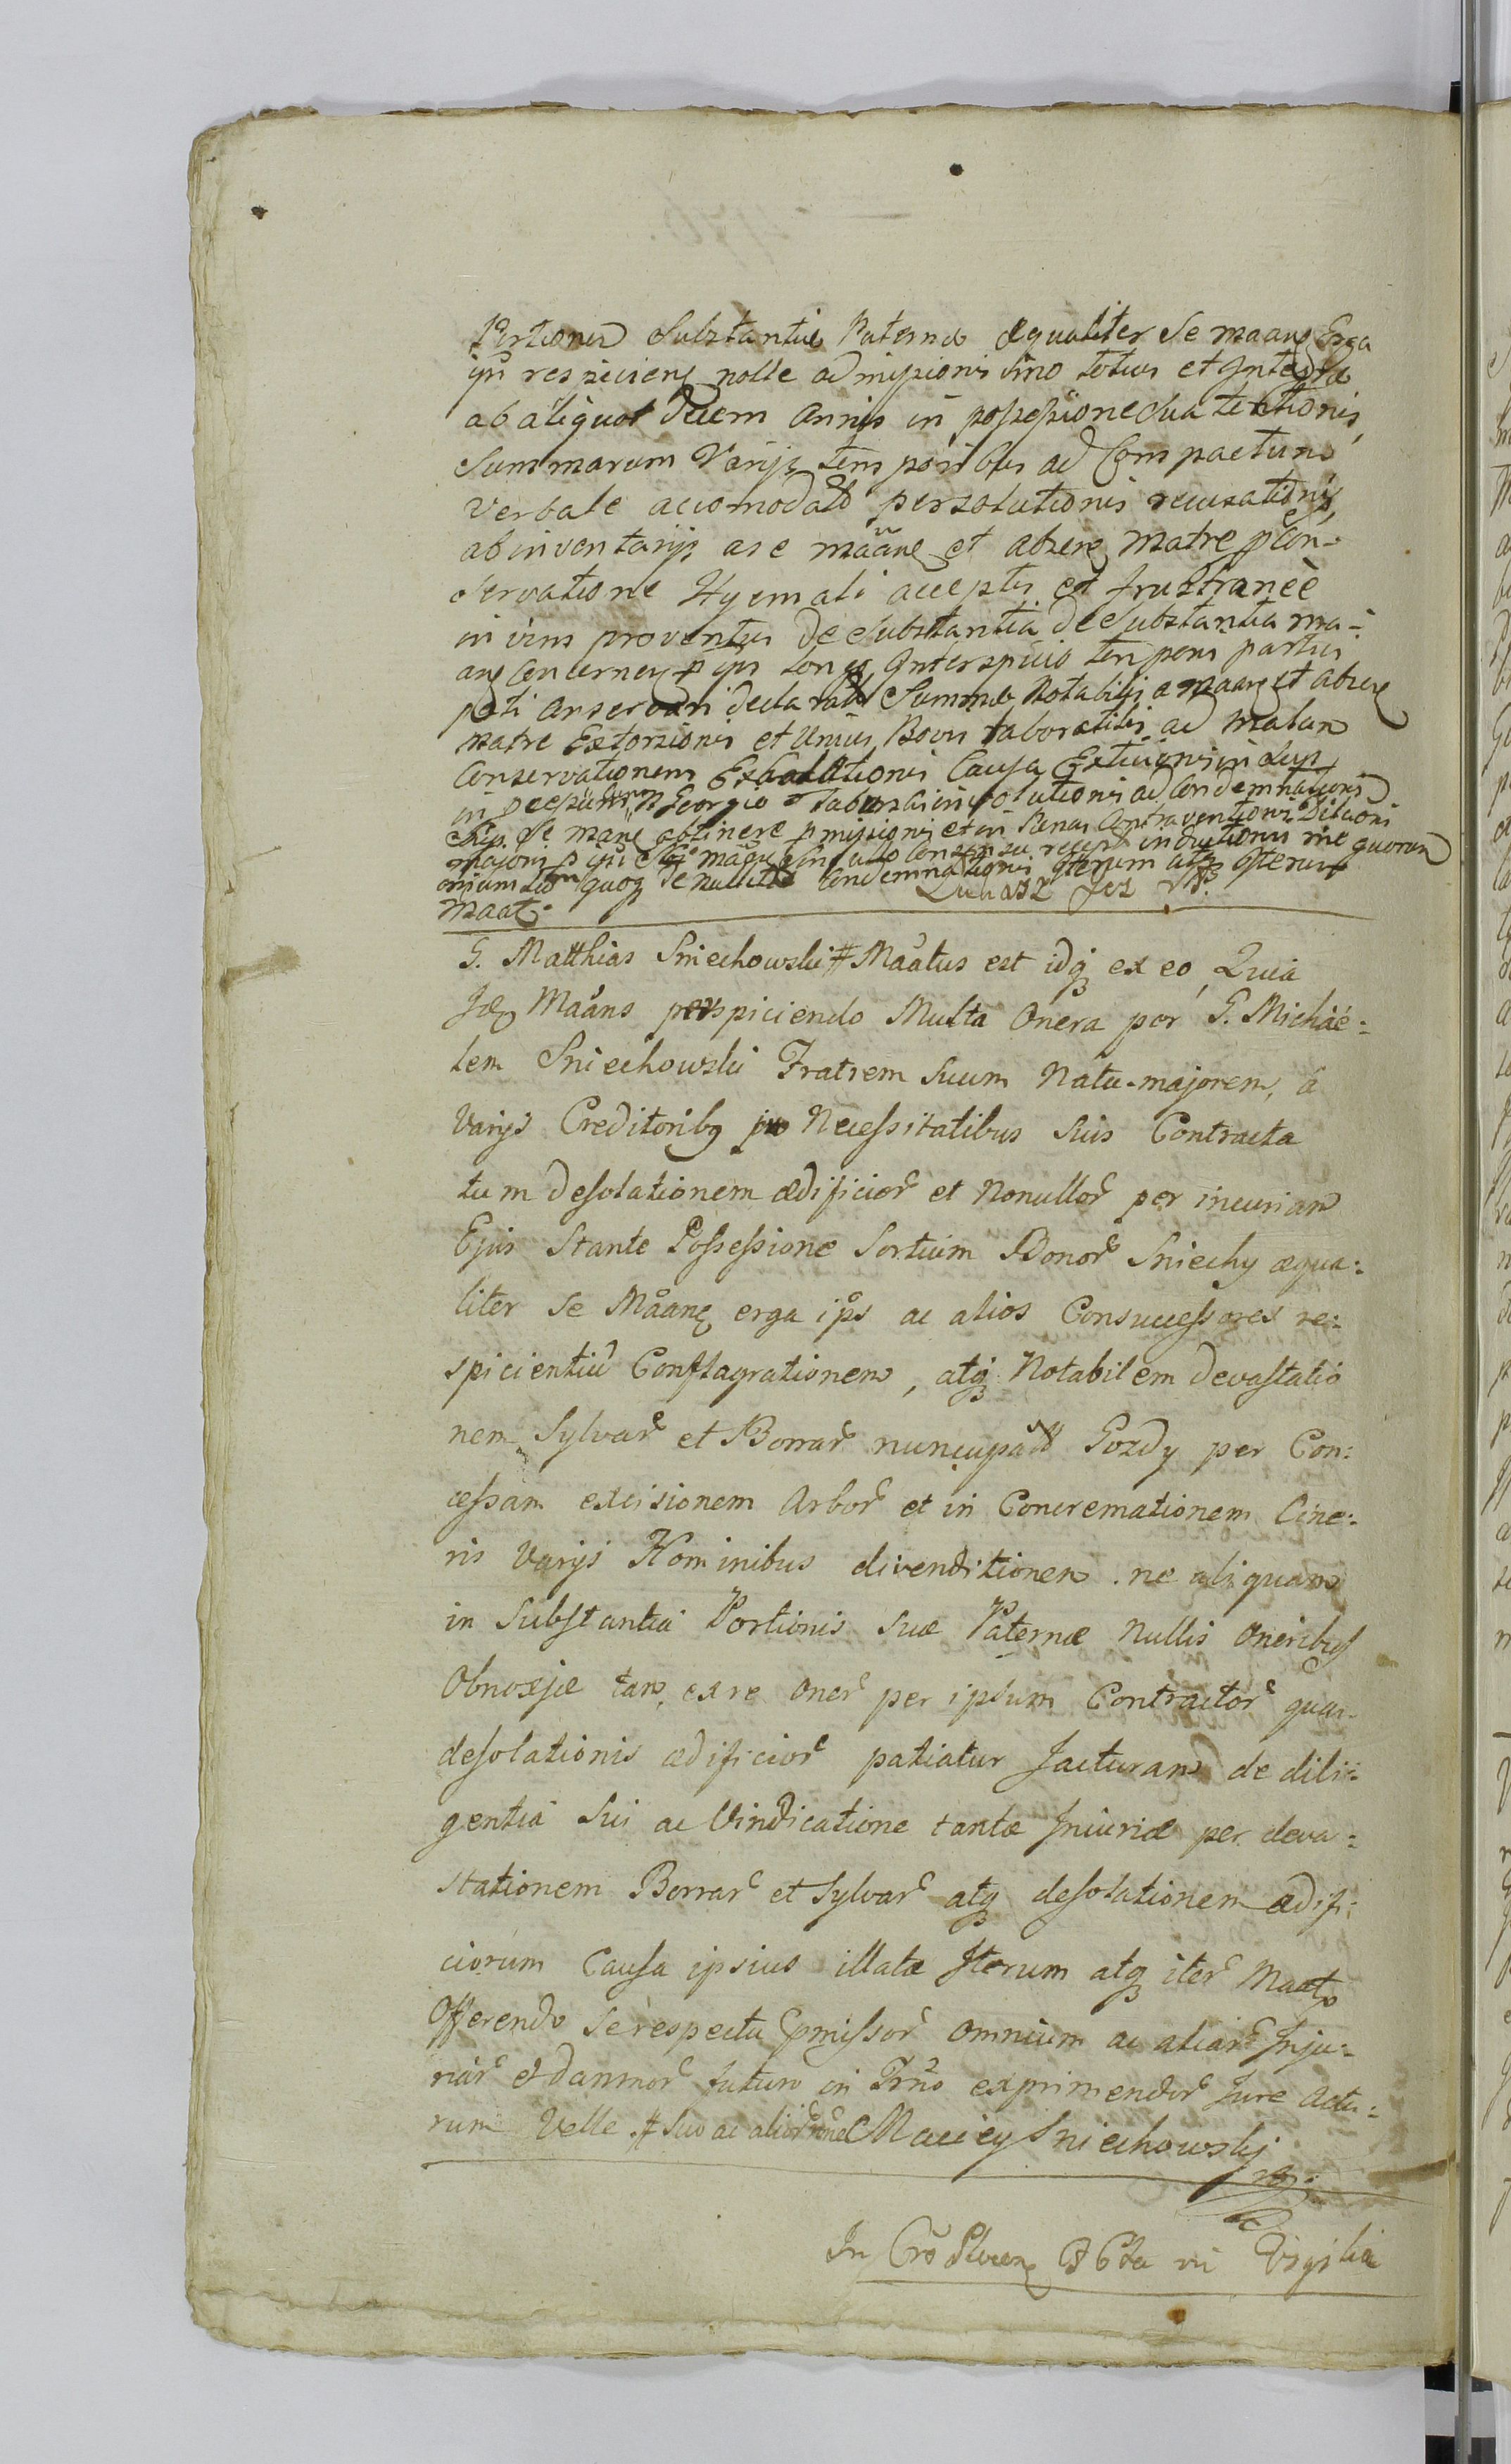 Portionis Substantiæ Paternæ æqualiter Se maañ Erga
ipm respicien nolle admissionis Imo totius et Integræ
ab aliquot Decem Annis in possessione Sua tentionis
Summarum Varijs temporibus ad Compactum
Verbale accomodato persolutionis recusationis
ab inventarijs a se mãane et absene Matre p Con-
servatione Hyemali acceptis et frustraneè
in vim proventus De Substantia De Substantia ma-
ane Concernen p ips longo Interspicio temporis partus
poti Anserum declarato Summæ Notabilis a maane et absene
Matre Extorsionis et Unius Bovis laboratilis ad Malam
Conservationem Causa Extinctionis in
in Georgio ad Condemnationis
Se mane obtinere pmissionis et in Pænas Contraventionis Dilaoni
majoris p ips sine ullo Consensu inductionis rne quorum
omnium quoq de nullitate Condemnationis Iterum atq Iterum
maat. Lukasz Jez
G. Matthias Sniechowski # Maatus est idq ex eo, Quia
Idem Maans perspiciendo Multa Onera per G. Michaë:
lem Sniechowski Fratrem Suum Natu-majorem, à
Varijs Creditoribq pro Necessitatibus Suis Contracta
tum desolationem ædificior et Nonullor per incuriam
Ejus Stante Possessione Sortium Bonor Sniechy æqua:
liter Se Maane erga ips ac alios Consuccessores re:
spicientiu Conflagrationem, atq Notabilem devastatio
nem Sylvar et Borrar nuncupat Gozdy per Con:
cessam excisionem Arbor et in Concremationem Cine:
ris Varijs Hominibus divenditionem. ne aliquam
in Substantia Portionis Suæ Paternæ Nullis Oneribus
Obnoxiæ tam ex re Oner per ipsum Contractor quam
desolationis ædificior patiatur Jacturam de dili:
gentia Sui ac Vindicatione tantæ Injuriæ per deva:
stationem Borrar et Sylvar atq desolationem ædifi:
ciorum Causa ipsius illatæ Iterum atq iter Maat
Offerendo Se respectu pmissor Omnium ac aliar Inju:
riar et damnor futuro in Trno exprimendor Jure Actu:
rum Velle # Suo ac alior noe Maciey Sniechowskj
mp
In Cro Plocen Vigilia